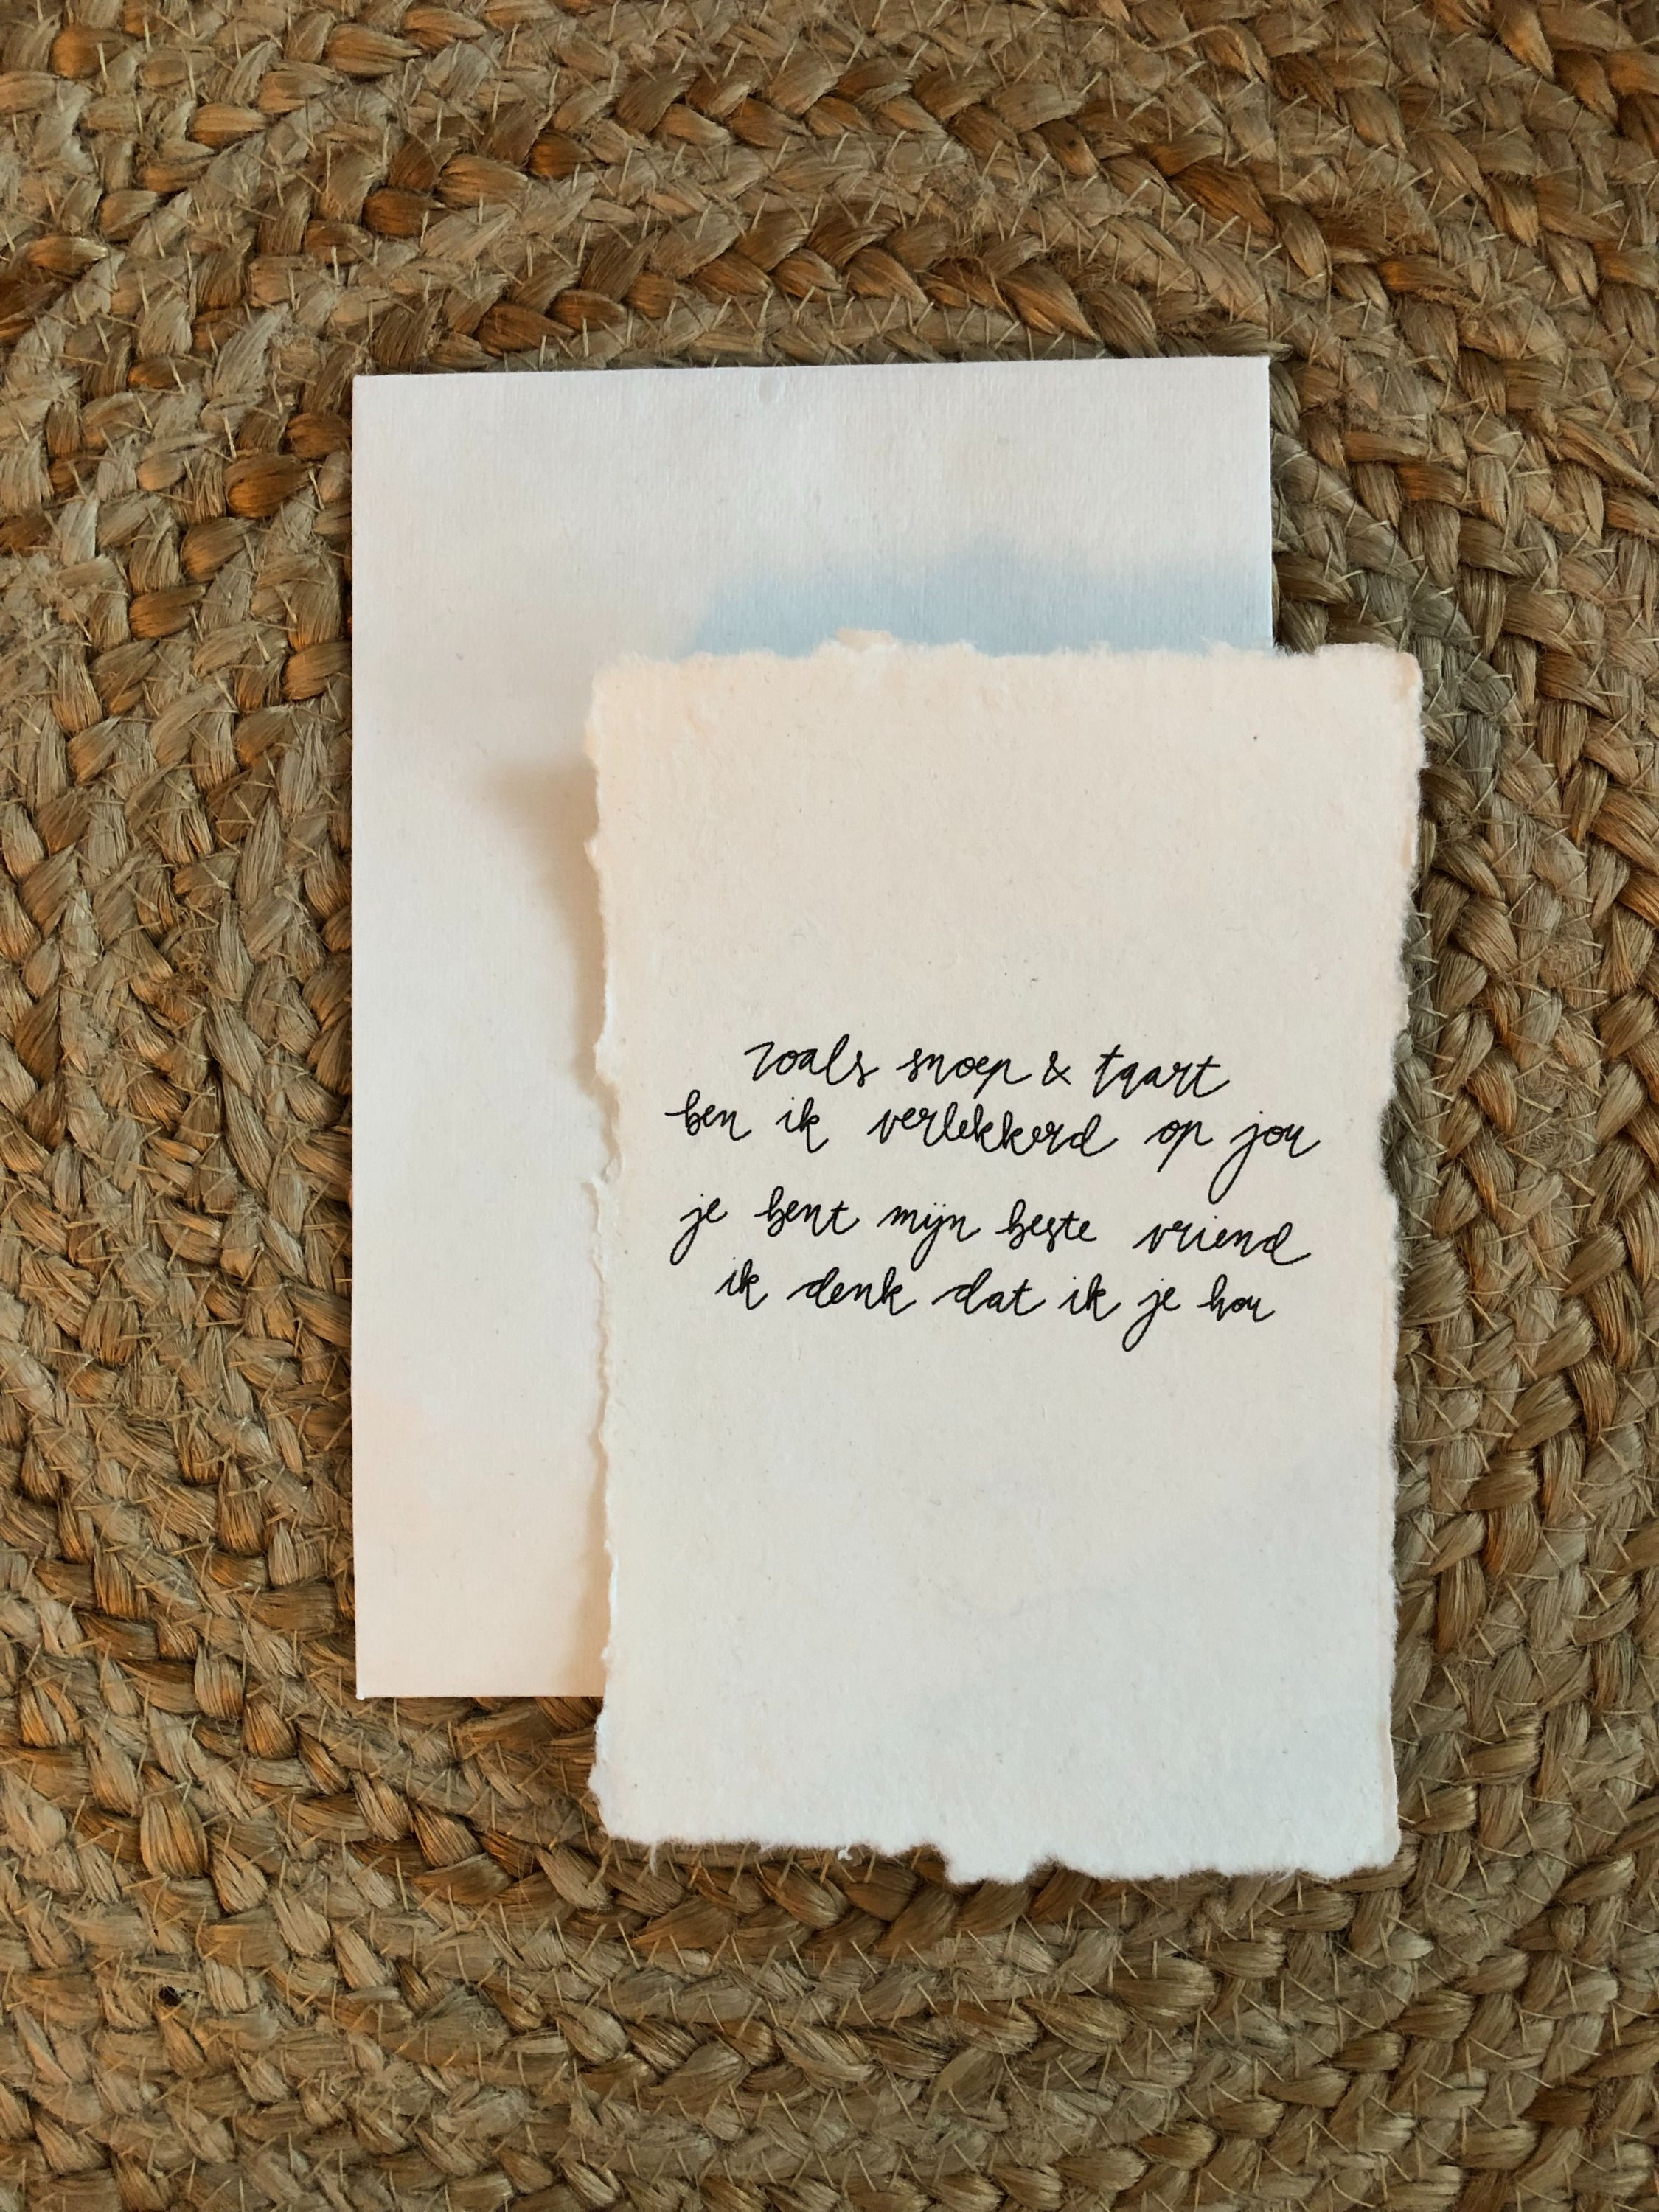 zoals snoep & taart
ben ik verlekkerd op jou
je bent mijn beste vriend
ik denk dat ik je hou